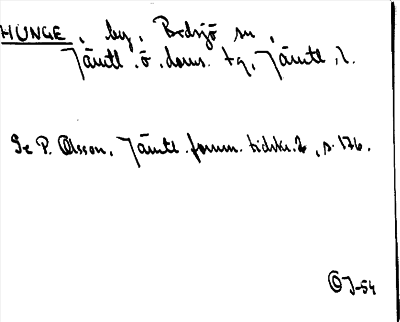 HUNGE, by, Bodsjö sn,
Jämtl. ö. doms. tg, Jämtl. l.
Se P. Olsson, Jämtl. fornm. tidskr. 2, s. 176.
OJ-54